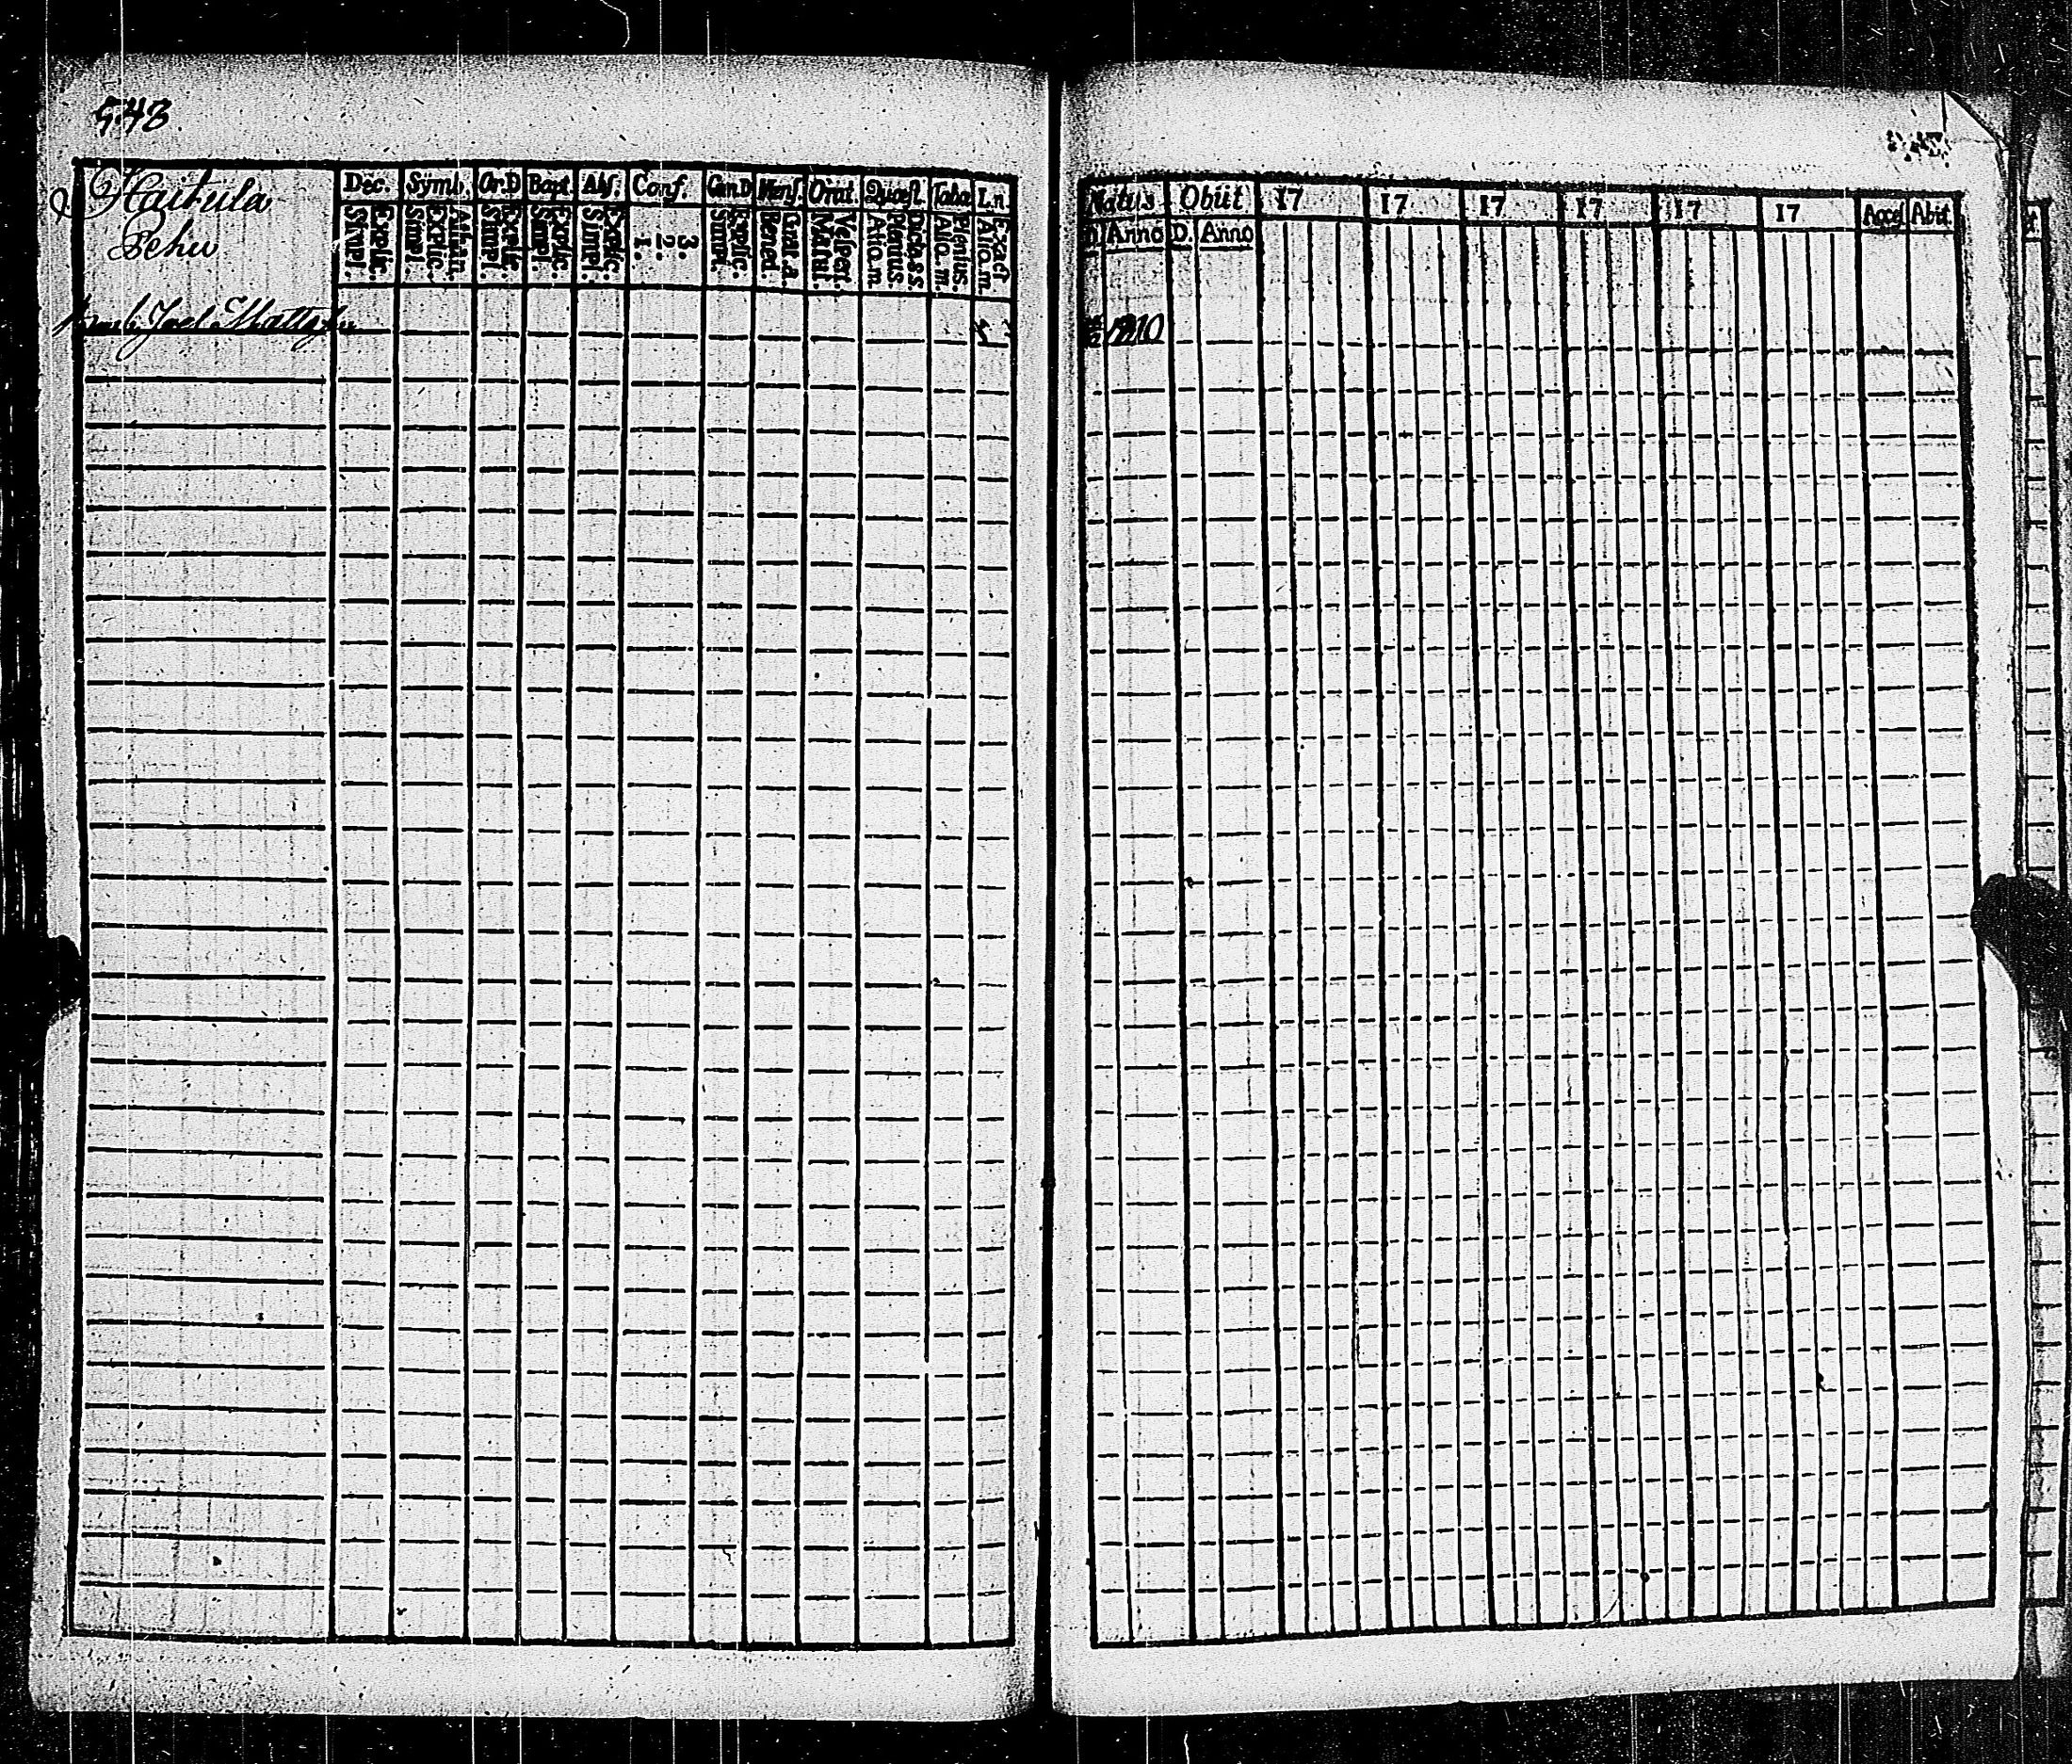 543
Haitula
Pehu
Joel Mattz
Dec. Symb. Or.D Bapt. Abs. Conf. Cen.D Mens. Orat. Quæst. Taba Ln.
Explic. Simpl.
Athan. Explic. Simpl.
Explic. Simpl.
Explic. Simpl.
Explic. Simpl.
3. 2. 1.
Explic. Simpl.
Grat.a. Bened.
Vesper. Matut.
Dicta.s.s. Plenius. Aliq.m.
Plenius. Aliq.m.
Exact Aliq.m.
Natus Obiit 17 17 17 17 17 17 Acces Abiit
D. Anno D. Anno
1810